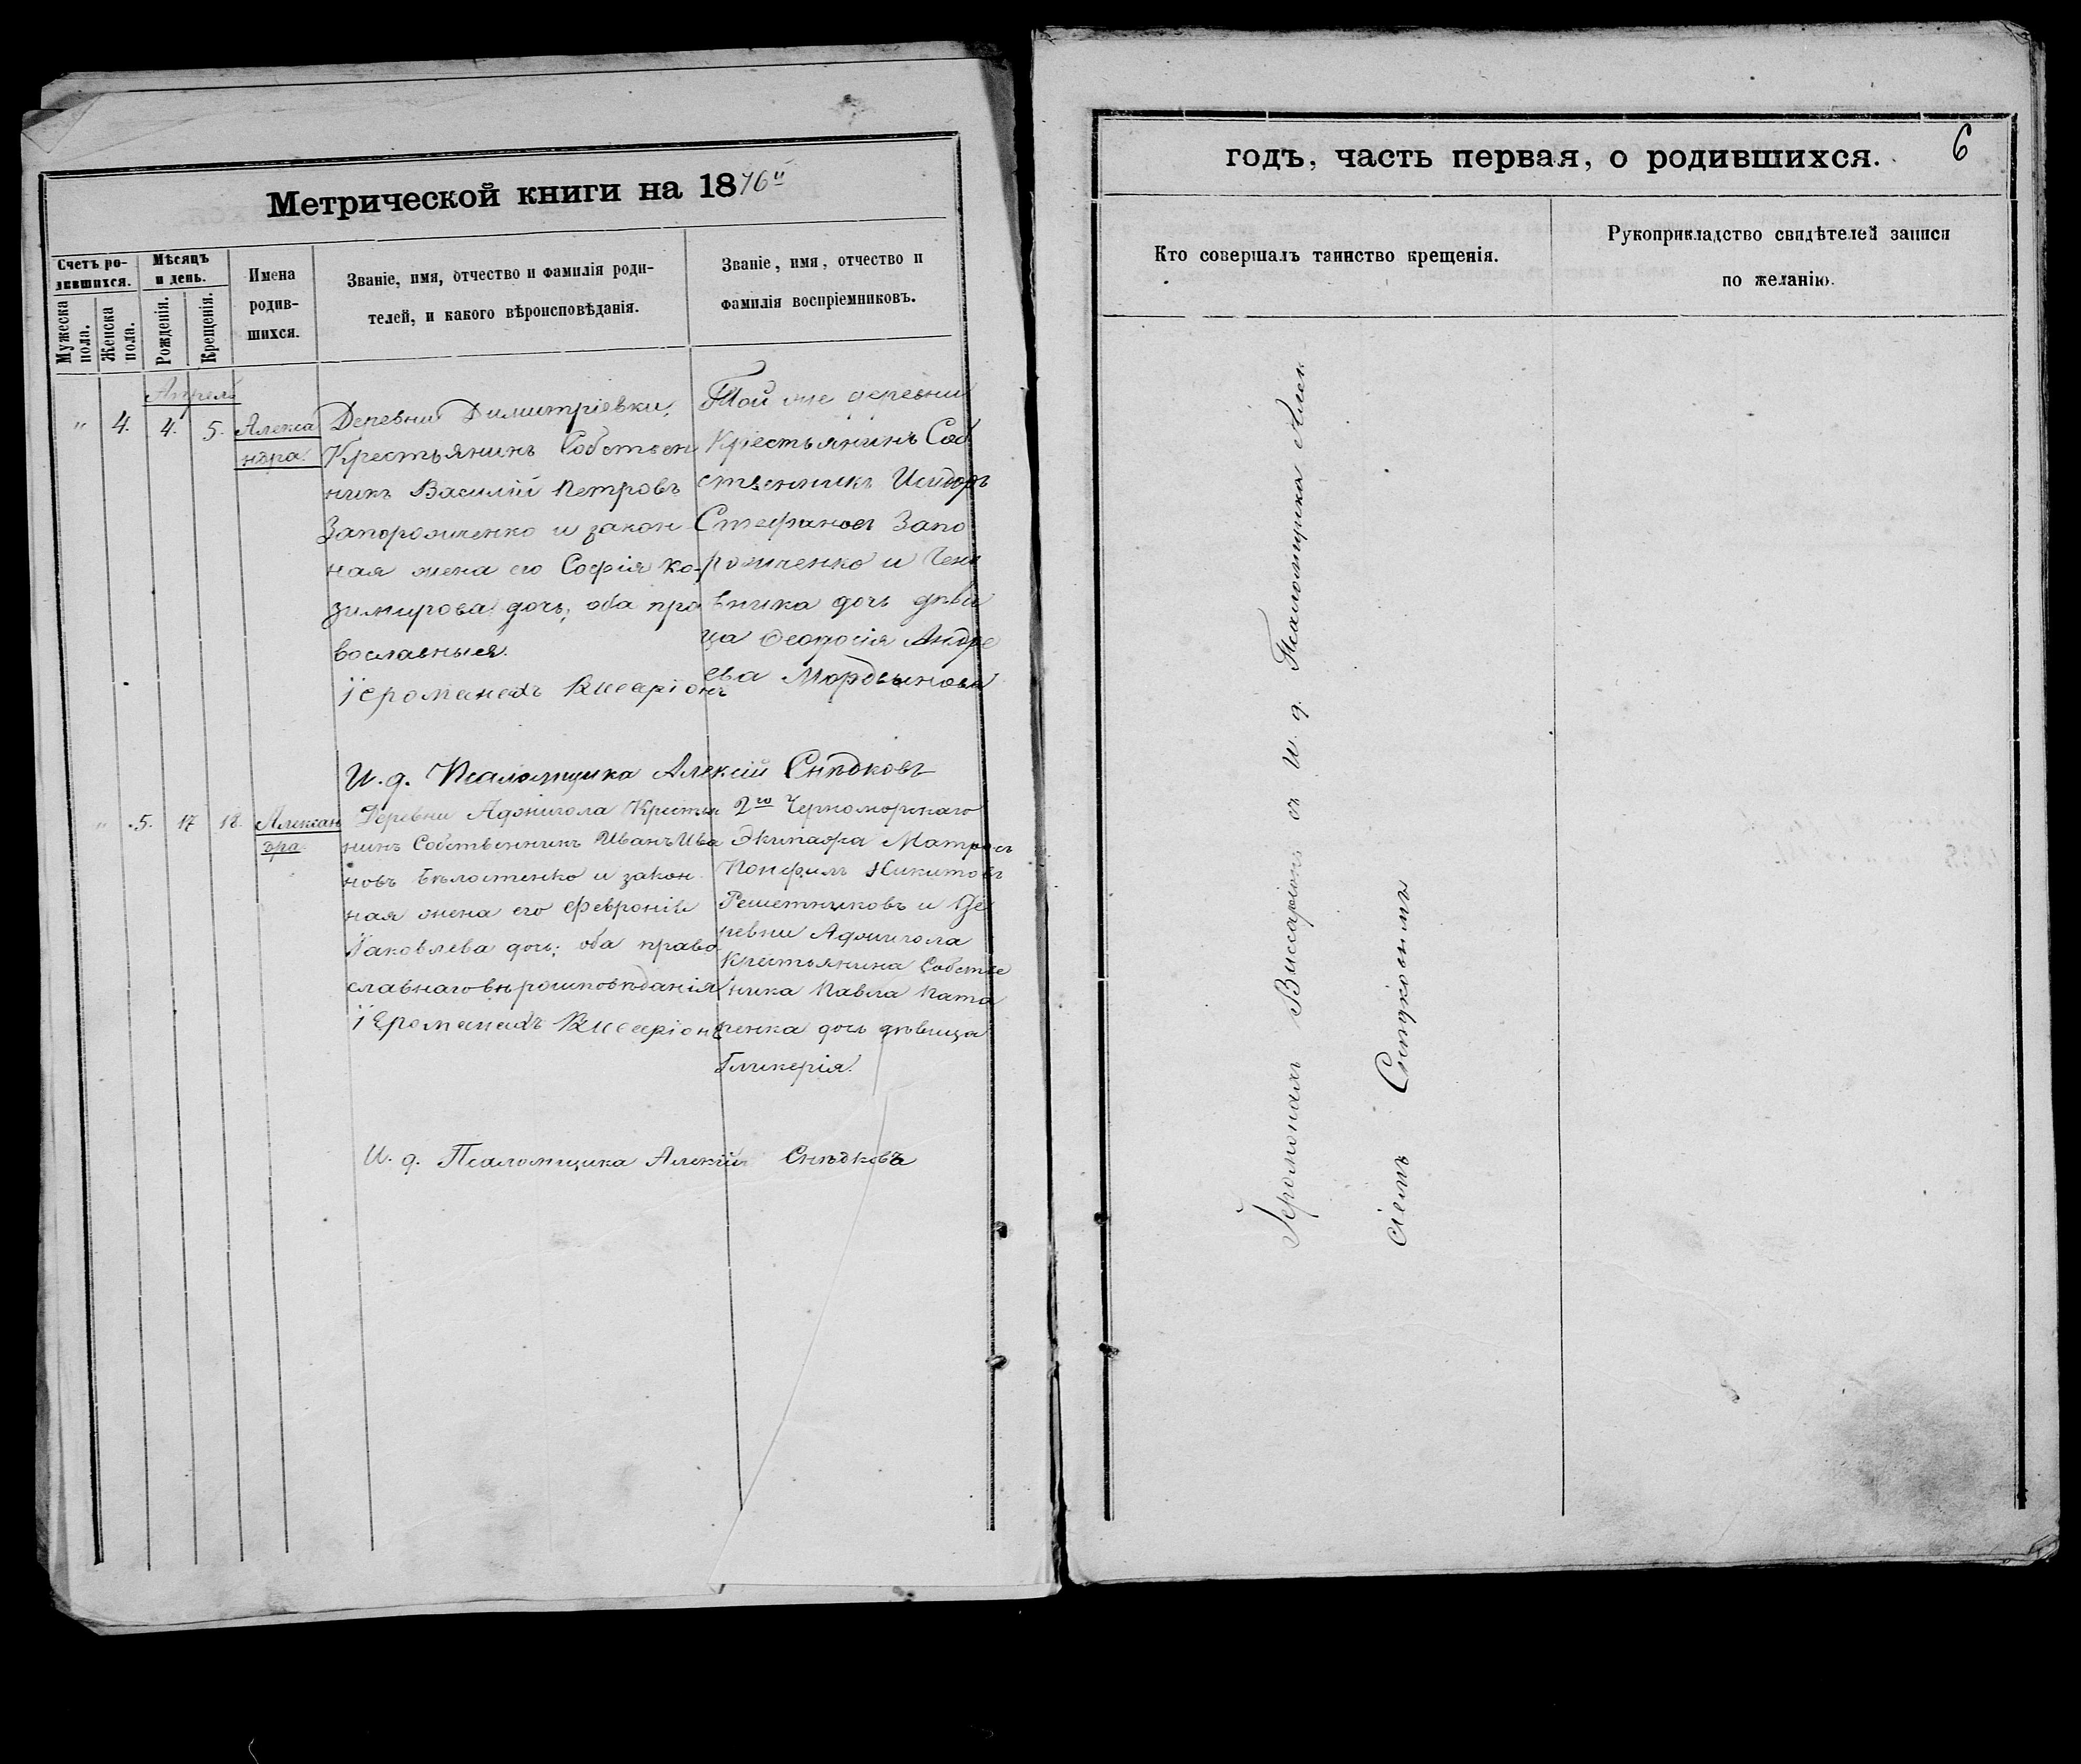 Метрической книги на 1876й
Счетъ ро-
дившихся.
Мужеска
пола.
Женска
пола.
Мѣсяцъ
и день.
Рожденія.
Крещенія.
Имена
родив-
шихся.
Званіе, имя, отчество и фамилія роди-
телей, и какого вѣроисповѣданія.
Званіе, имя, отчество и
фамилія воспріемниковъ.
Апрель
" 4. 4. 5.
Алекса
ндра.
Деревни Димитріевки,
Крестьянинъ Собствен
никъ Василій Петровъ
Запорожченко и закон
ная жена его Софія Ка-
зимирова дочь; оба пра
вославные.
Іеромонахъ Висаріонъ
Той же деревни
Крестьянинъ Соб
ственникъ Исидоръ
Стефановъ Запо
рожченко и
вника дочь дѣви
ца Феодосія Андре
ева Мордвинова
И. д. Псаломщика Алексій Снѣдковъ
" 5. 17 18.
Алексан
дра.
Деревни Аджигола Крестья
нинъ Собственникъ Иванъ Ива
новъ Бѣлостенко и закон
ная жена его Февронія
Іаковлева дочь; оба право
славнаго вѣроисповѣданія
Іеромонахъ Висаріонъ
2го Черноморскаго
Экипажа Матросъ
Понфилъ Никитовъ
Решетниковъ и Де
ревни Аджигола
Крестьянина Собстве
ника Павла Ната
ренка дочь дѣвица
Гликерія.
И. д. Псаломщика Алексій Снѣдковъ
годъ, часть первая, о родившихся.
6
Кто совершалъ таинство крещенія.
Рукоприкладство свидѣтелей записи
по желанію.
Іеромонахъ Виссаріонъ съ И. д. Псаломщика Алек
сіемъ Снѣдковымъ